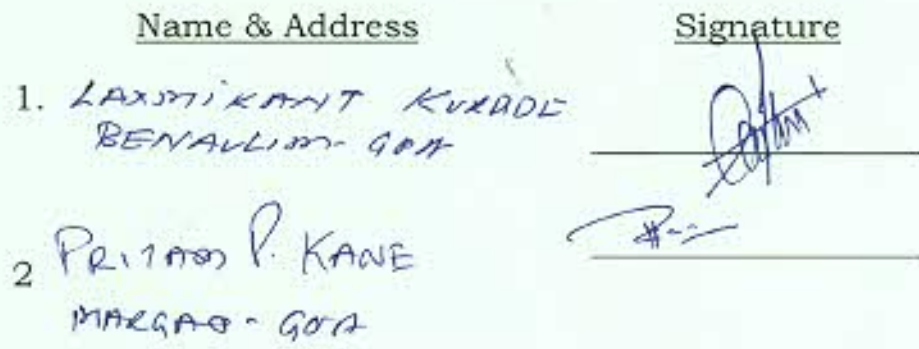 Name & Address Signature
1. LAXMIKANT KURADE
BENAULIM - GOA
2 PRITAM P. KANE
MARGAO - GOA